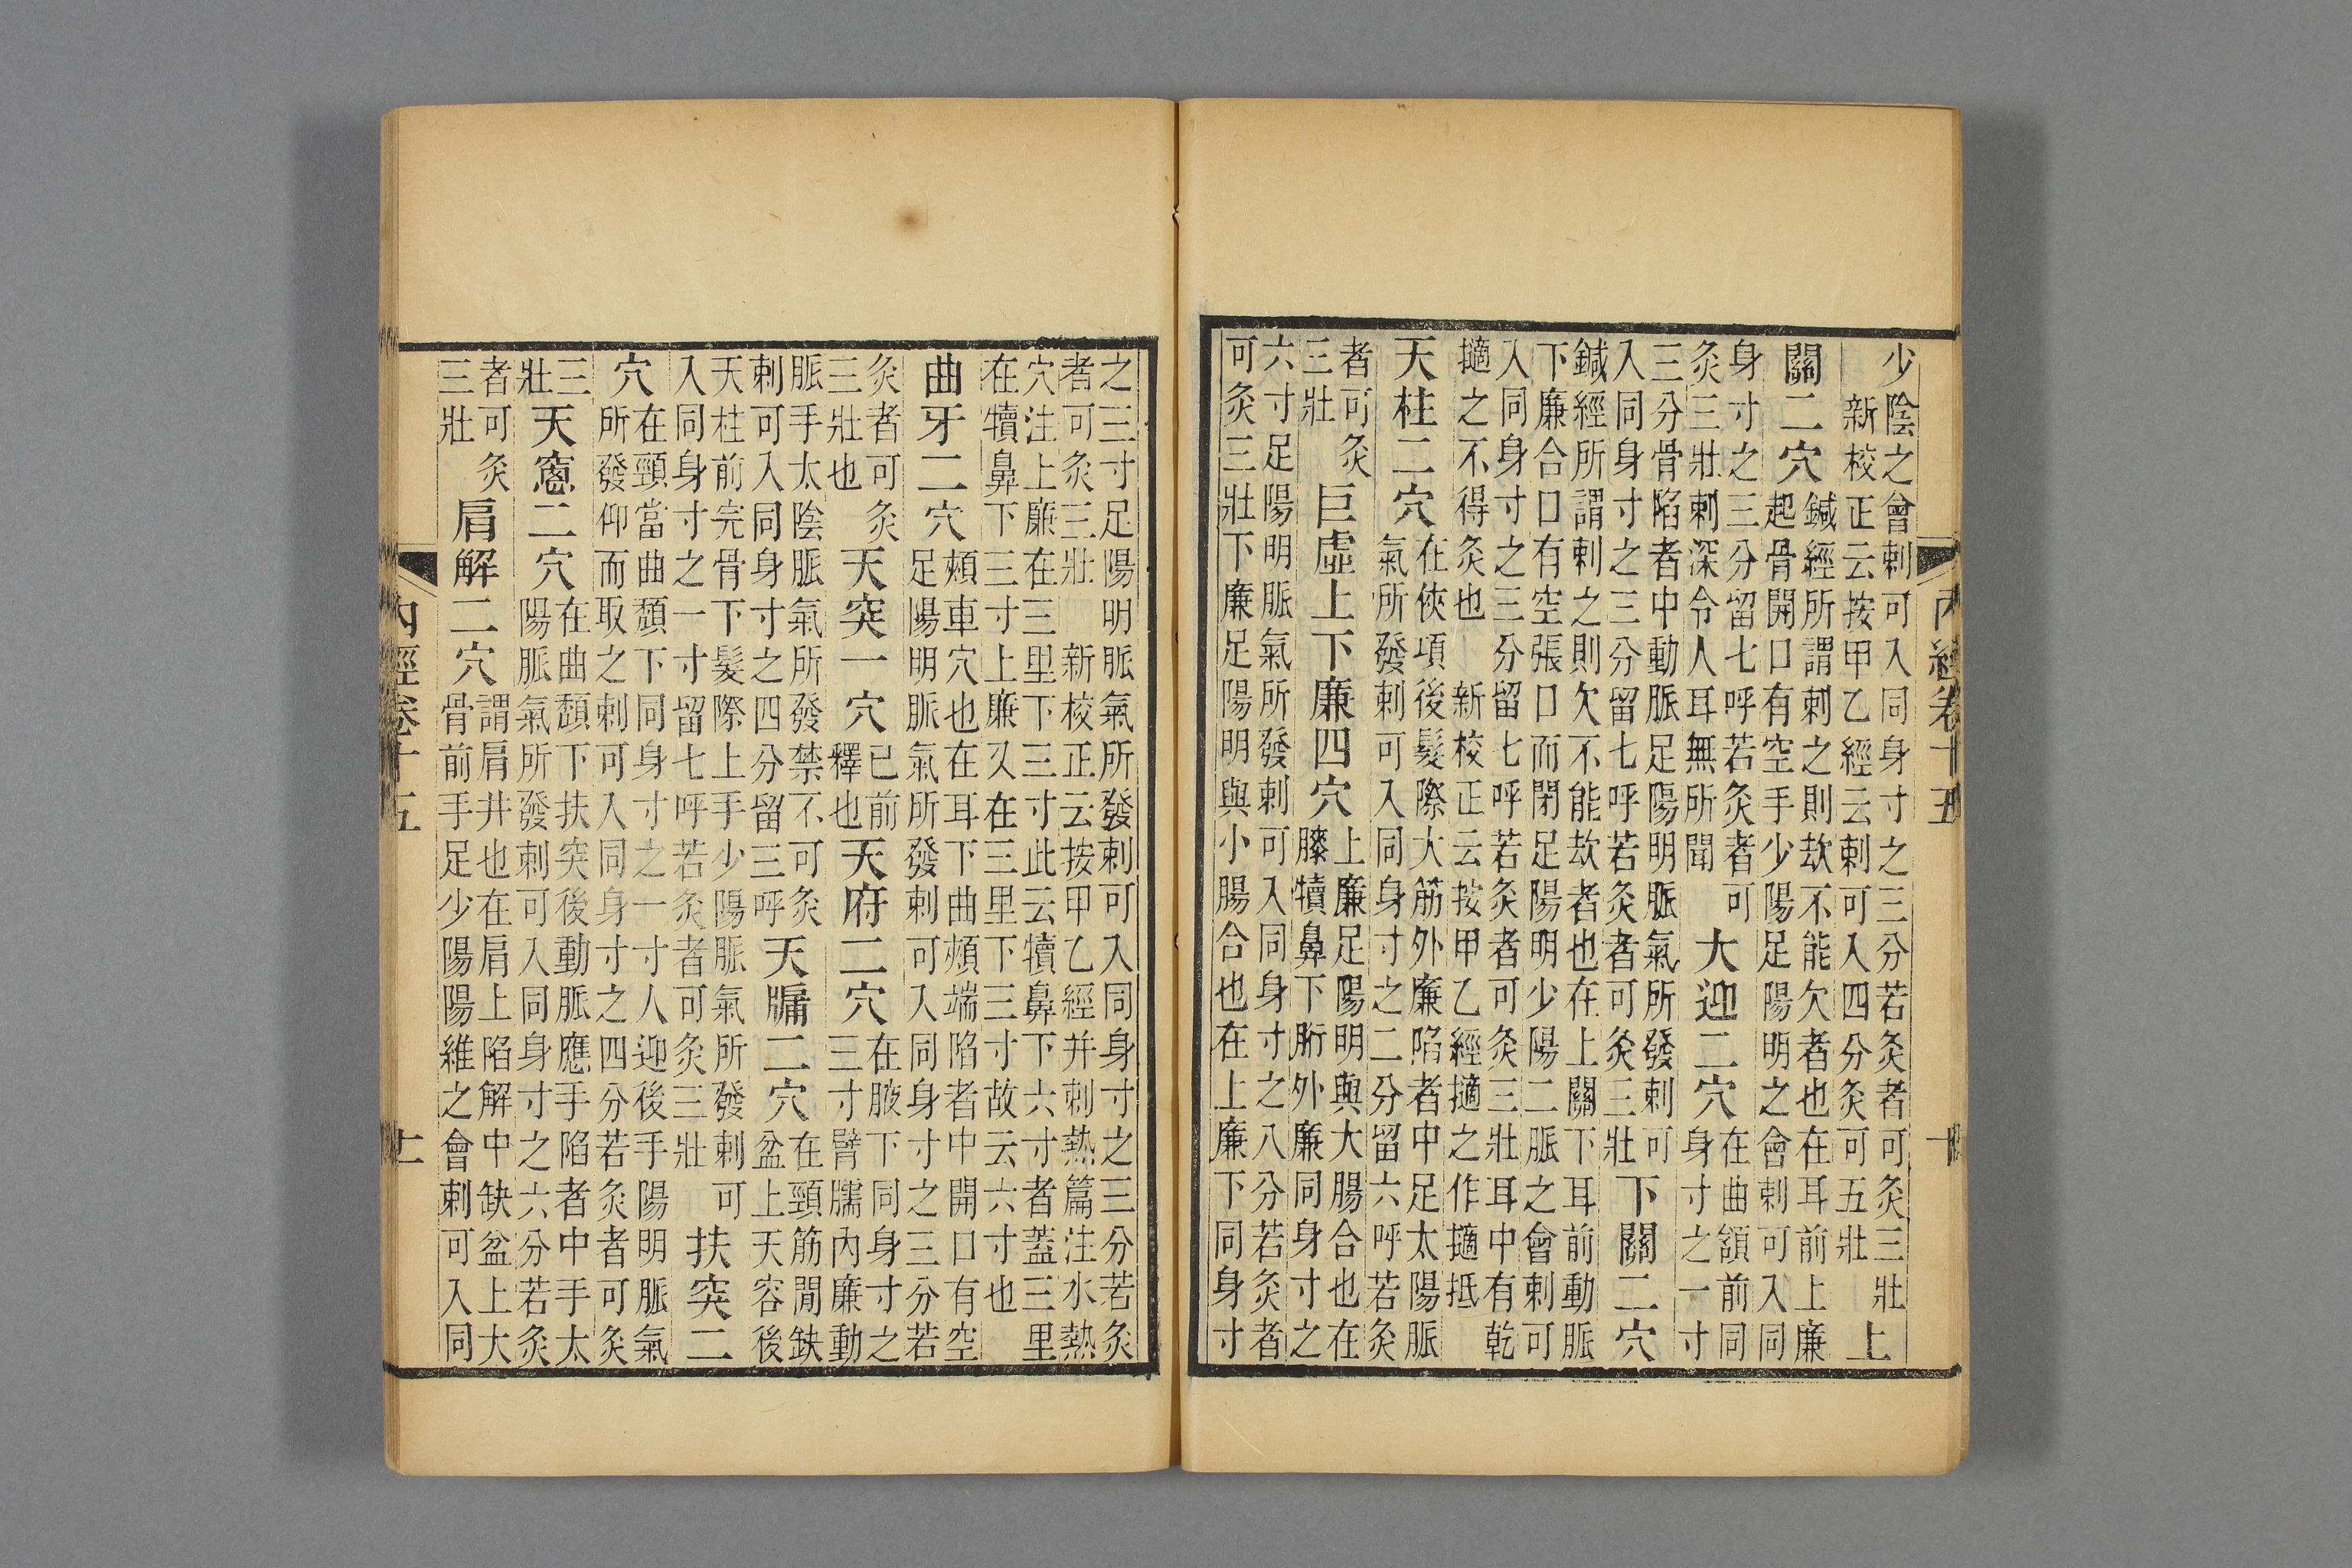 少陰之會刺可入同身寸之三分若灸者可灸三壯
新校正云按甲乙經云刺可入四分灸可五壯
上
關二穴
鍼經所謂刺之則欬不能欠者也在耳前上廉
起骨開口有空手少陽足陽明之會刺可入同
身寸之三分留七呼若灸者可
灸三壯刺深令人耳無所聞
大迎二穴
在曲頷前同
身寸之一寸
三分骨陷者中動脈足陽明脈氣所發刺可
入同身寸之三分留七呼若灸者可灸三壯
下關二穴
鍼經所謂刺之則欠不能欬者也在上關下耳前動脈
下廉合口有空張口而閉足陽明少陽二脈之會刺可
入同身寸之三分留七呼若灸者可灸三壯耳中有乾
擿之不得灸也 新校正云按甲乙經擿之作擿抵
天柱二穴
在俠項後髮際大筋外廉陷者中足太陽脈
氣所發刺可入同身寸之二分留六呼若灸
者可灸
三壯
巨虛上下廉四穴
上廉足陽明與大腸合也在
膝犢鼻下胻外廉同身寸之
六寸足陽明脈氣所發刺可入同身寸之八分若灸者
可灸三壯下廉足陽明與小腸合也在上廉下同身寸
內經卷十五
十
之三寸足陽明脈氣所發刺可入同身寸之三分若灸
者可灸三壯 新校正云按甲乙經幷刺熱篇注水熱
穴注上廉在三里下三寸此云犢鼻下六寸者蓋三里
在犢鼻下三寸上廉又在三里下三寸故云六寸也
曲牙二穴
頰車穴也在耳下曲頰端陷者中開口有空
足陽明脈氣所發刺可入同身寸之三分若
灸者可灸
三壯也
天突一穴
已前
釋也
天府二穴
在腋下同身寸之
三寸臂臑內廉動
脈手太陰脈氣所發禁不可灸
刺可入同身寸之四分留三呼
天牖二穴
在頸筋間缺
盆上天容後
天柱前完骨下髮際上手少陽脈氣所發刺可
入同身寸之一寸留七呼若灸者可灸三壯
扶突二
穴
在頸當曲頰下同身寸之一寸人迎後手陽明脈氣
所發仰而取之刺可入同身寸之四分若灸者可灸
三
壯
天窻二穴
在曲頰下扶突後動脈應手陷者中手太
陽脈氣所發刺可入同身寸之六分若灸
者可灸
三壯
肩解二穴
謂肩井也在肩上陷解中缺盆上大
骨前手足少陽陽維之會刺可入同
內經卷十五
十一